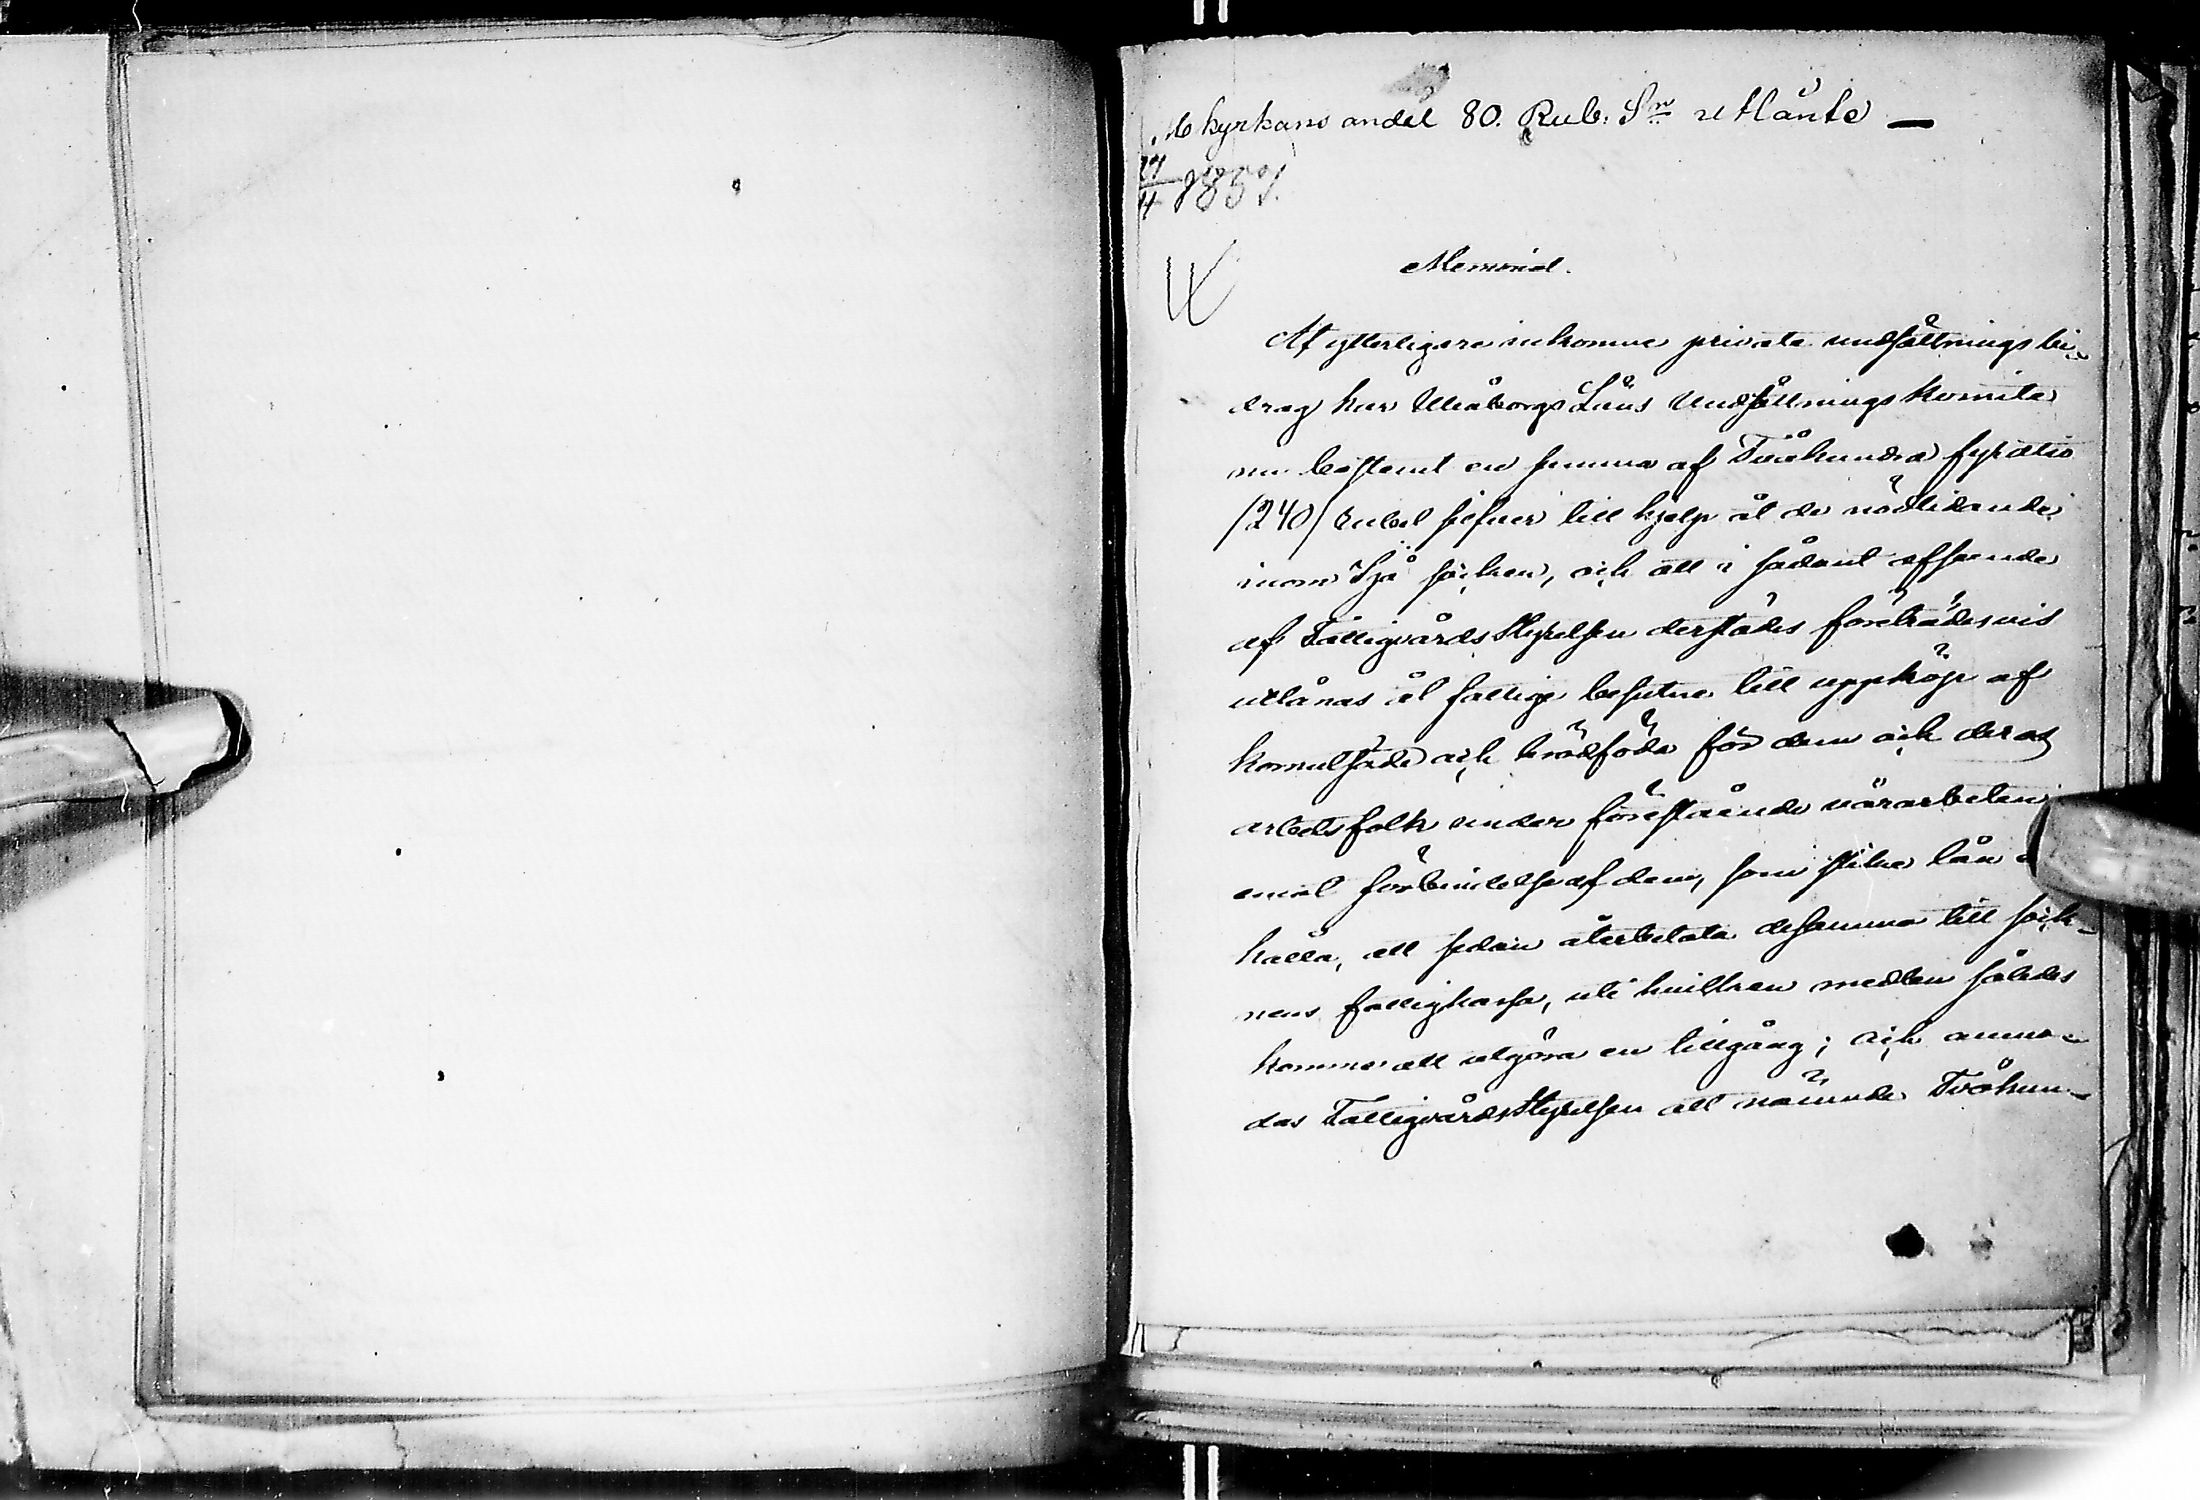 M kyrkans andel 80. Rub. Sr utlånte —
27/4 1857.
Memorial.
Af ytterligare inkomne privata undsättningsbi-
drag har Uleåborgs Läns Undsättnings Komite
nu bestämt en summa af Tvåhundra fyratio
/240/ rubel silfver till hjelp åt de nödlidande
inom Ijå socken, och att i sådant afseende
af FattigvårdsStyrelsen derstädes företrädesvis
utlånas åt fattige besutne till uppköp af
kornutsäde och brödföda för dem och deras
arbetsfolk under förestående vårarbeten
emot förbindelse af dem, som slike lån
hålla, att sedan återbetala desamma till sock-
nens fattigkassa, uti hvilken medlen således
komma att utgöra en tillgång; och anmo-
das FattigvårdsStyrelsen att nämnde Tvåhun-